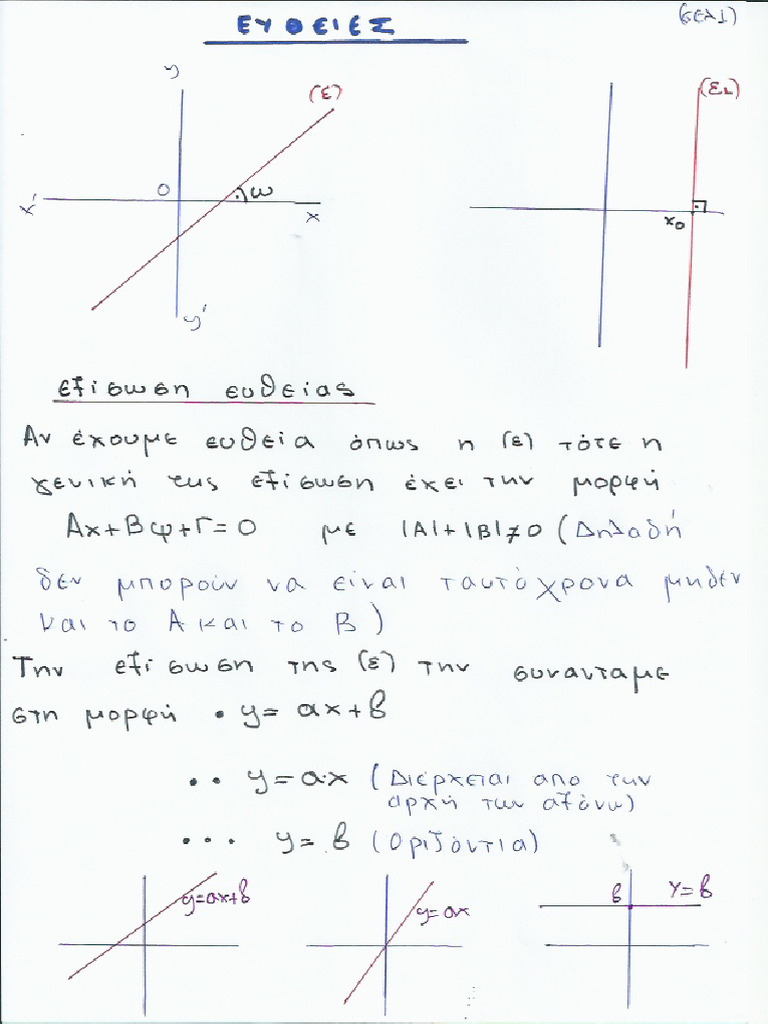 ΕΥΘΕΙΕΣ
(ΣΕΛ1)
y
(ε)
(ε₂)
x'
0
ω
x
x₀
y'
εξίσωση ευθείας
Αν έχουμε ευθεία όπως η (ε) τότε η
γενική της εξίσωση έχει την μορφή
Αx+Βψ+Γ=0 με |Α|+|Β|≠0 (Δηλαδή
δεν μπορούν να είναι ταυτόχρονα μηδεν
και το Α και το Β)
Την εξίσωση της (ε) την συναντάμε
στη μορφή • y= αx+β
•• y=α·x (Διέρχεται απο την
αρχή των αξόνω)
••• y= β (Οριζόντια)
y=αx+β
y=αx
β
Y=β